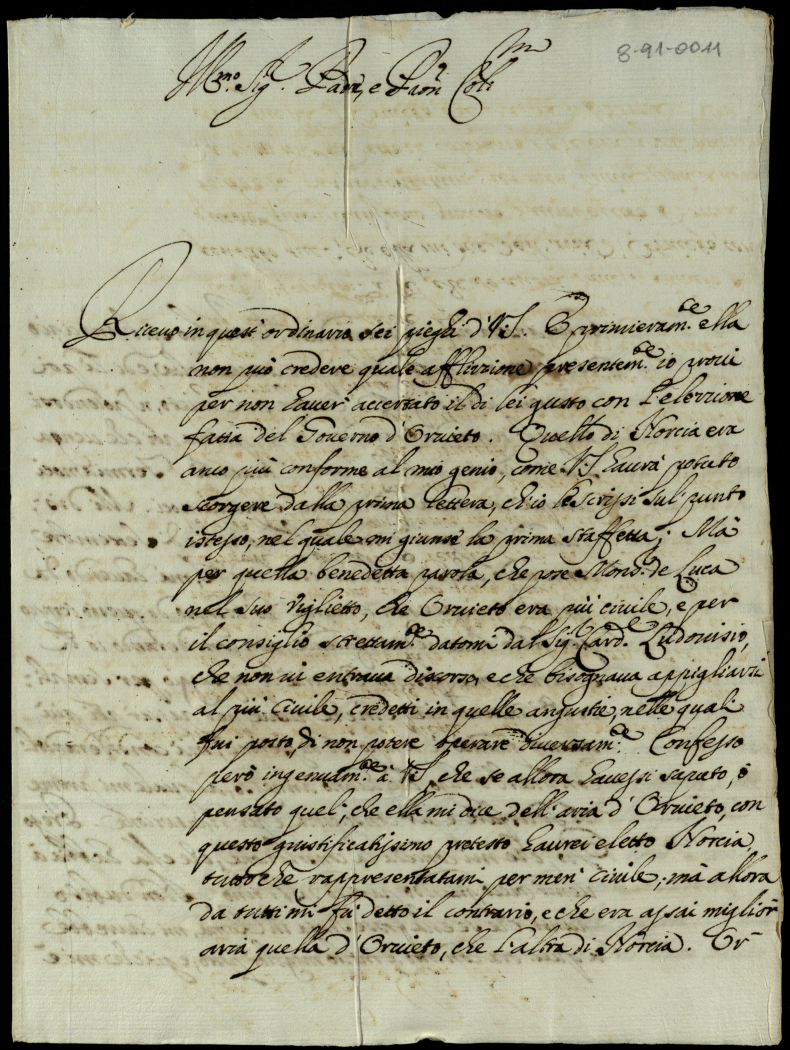 8-91-0011
Ill.mo Sig.r Padr.e, e Pron. Col.mo
Riceuo in quest'ordinario sei pieghi d'V.S. E primieram.te ella
non può credere quale afflizzione presentem.te io proui
per non hauer' accertato il di lei gusto con l'elezzione
fatta del Gouerno d'Oruieto. Quello di Norcia era
anco più conforme al mio genio, come V.S. haurà potuto
scorgere dalla prima lettera, ch'io le scrissi sul punto
istesso, nel quale mi giunse la prima staffetta; Mà
per quella benedetta parola, che pose Mons.r de Luca
nel suo viglietto, che Oruieto era più ciuile, e per
il consiglio strettam.te datomi dal Sig.r Card.le Ludouisio,
che non ui entraua discorso, e che bisognaua appigliarsi
al più ciuile, credetti in quelle angustie, nelle quali
fui posto, di non potere operare diuersam.te Confesso
però ingenuam.te à V.S., che se allora hauessi saputo, ò
pensato quel', che ella mi dice dell'aria d'Oruieto, con
questo giustificatissimo pretesto haurei eletto Norcia,
tutto che rappresentatami per men' ciuile; mà allora
da tutti mi fù detto il contrario, e che era assai miglior
aria quella d'Oruieto, che l'altra di Norcia. Or